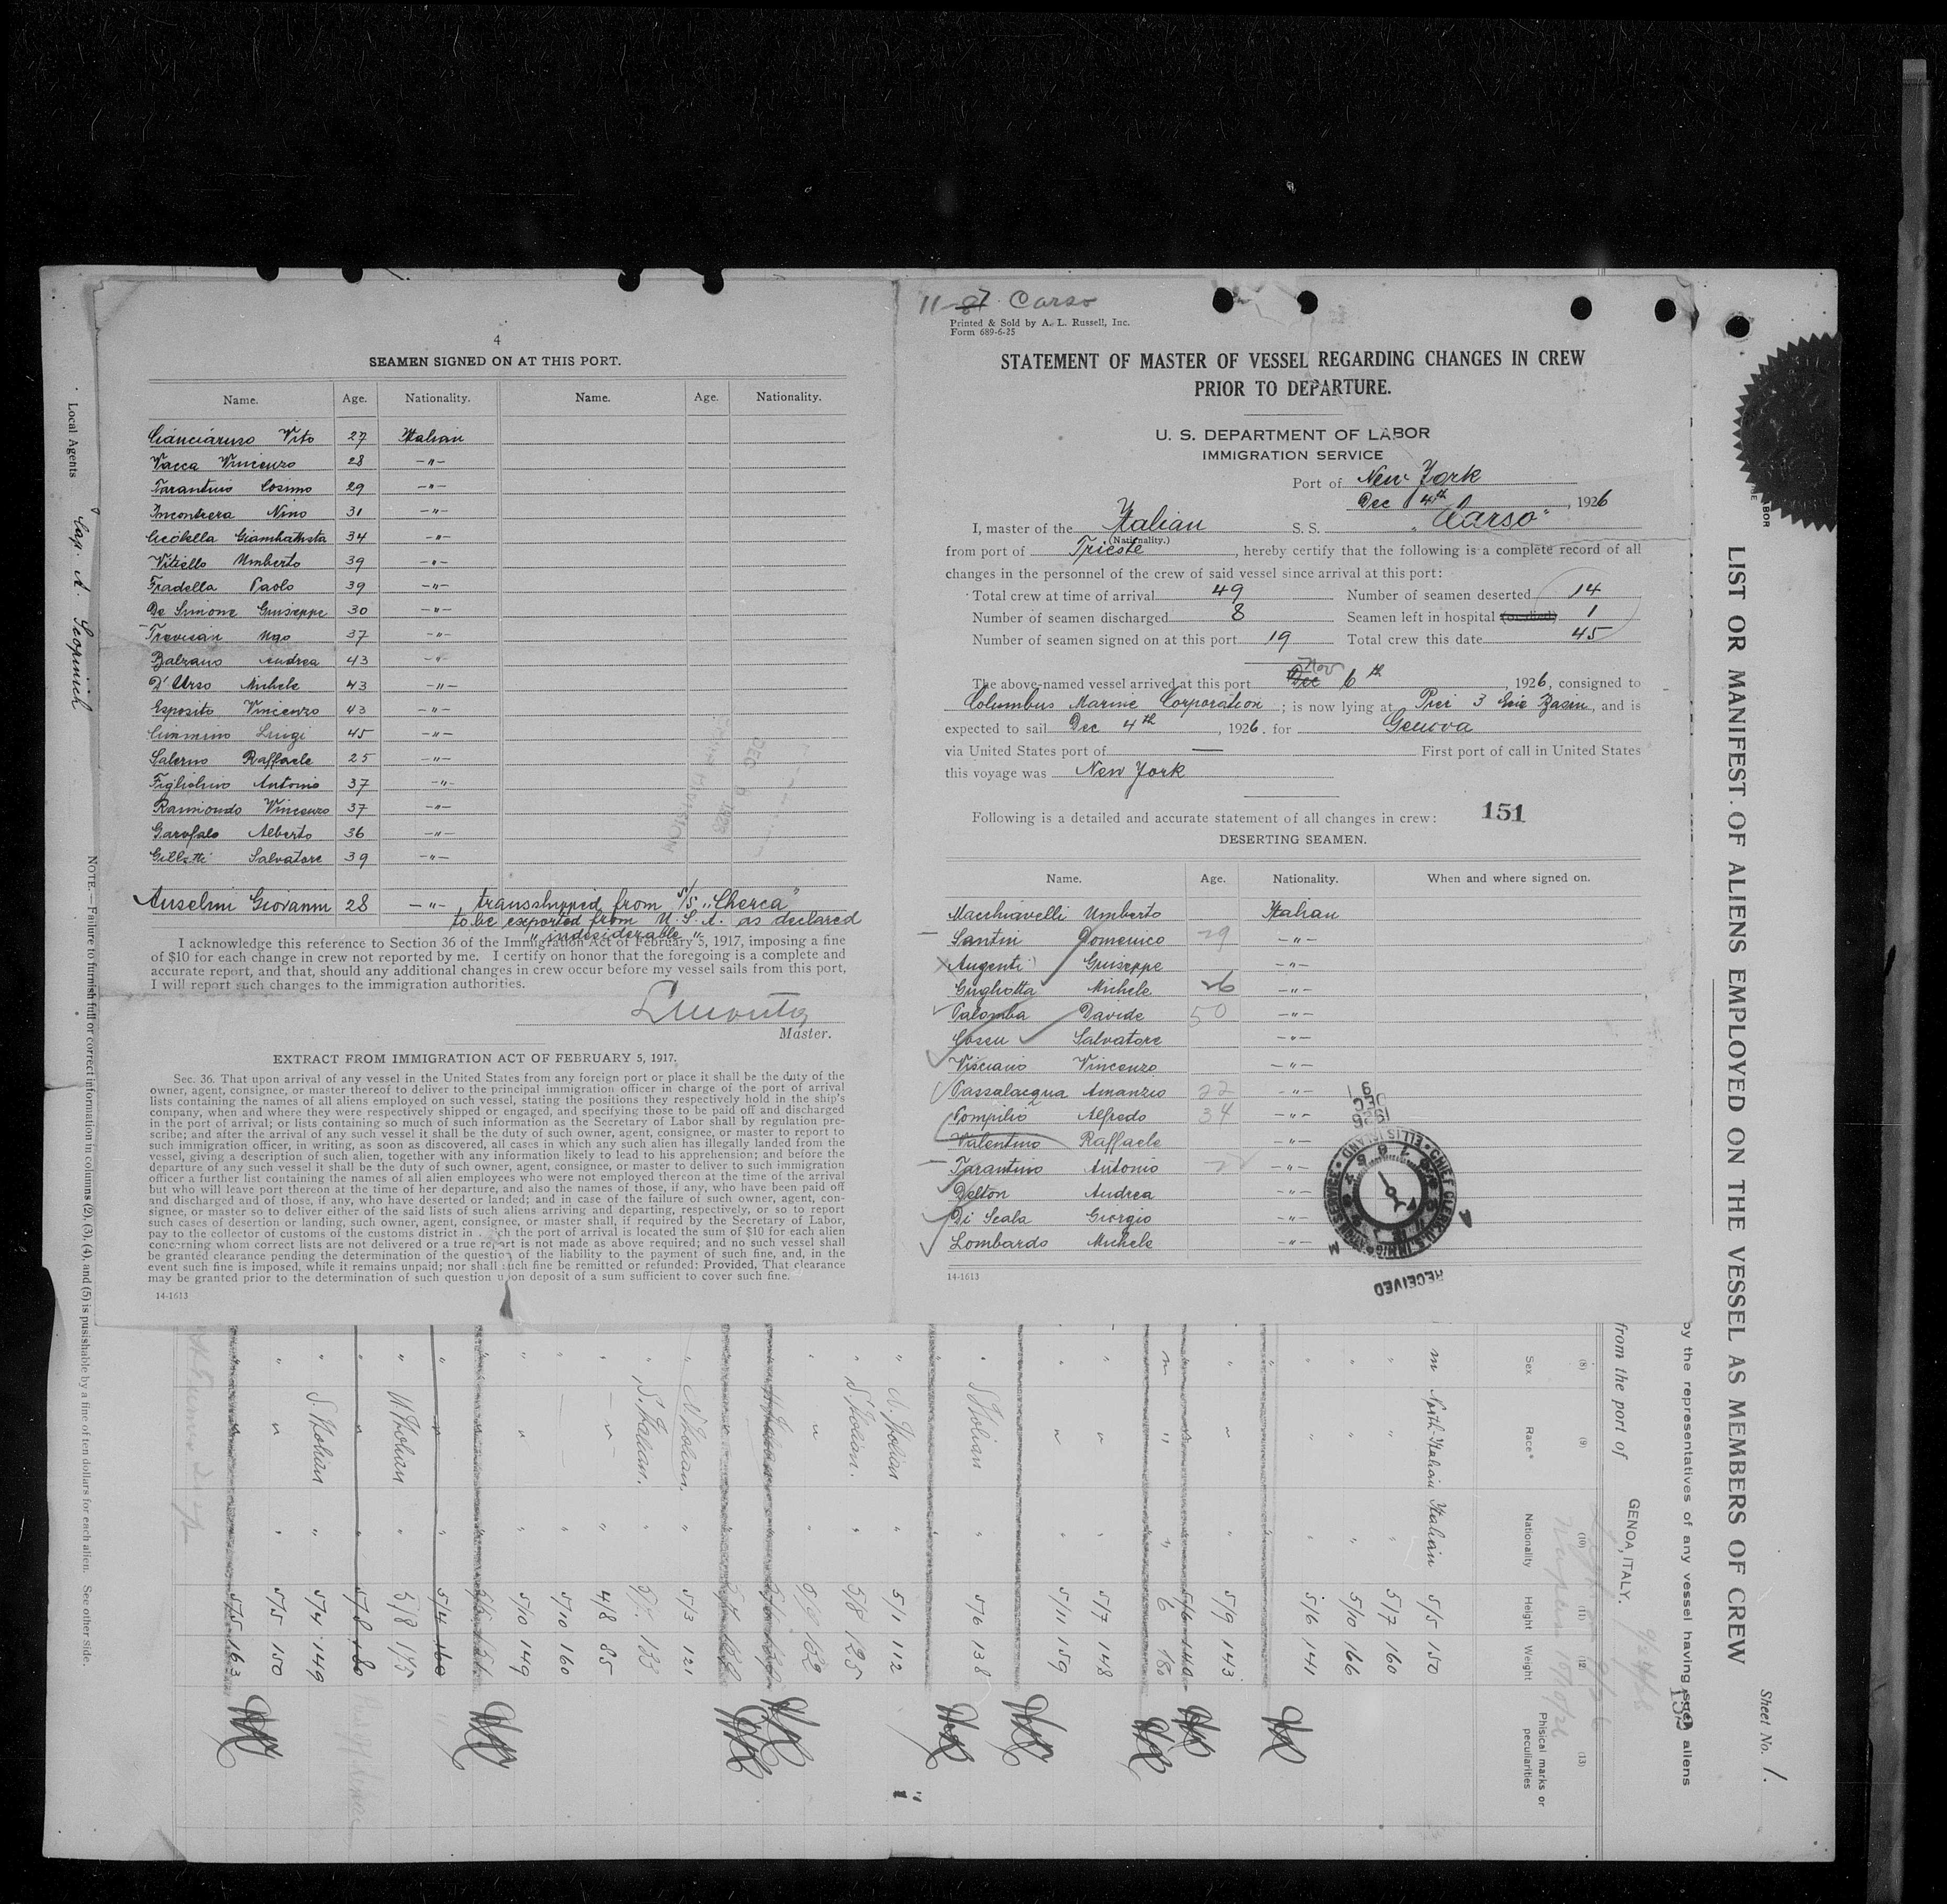 4
SEAMEN SIGNED ON AT THIS PORT.
Name. Age. Nationality. Name. Age. Nationality.
Cianciaruso Vito 27 Italian
Vacca Vincenzo 28 -"-
Tarantino Cosimo 29 -"-
Incontrera Nino 31 -"-
Cicolella Giambattista 34 -"-
Vitiello Umberto 39 -"-
Fradella Paolo 39 -"-
De Simone Giuseppe 30 -"-
Trevisan Ugo 37 -"-
Balzano Andrea 43 -"-
D'Urso Michele 43 -"-
Esposito Vincenzo 43 -"-
Cimmino Luigi 45 -"-
Salerno Raffaele 25 -"-
Figliolino Antonio 37 -"-
Raimondo Vincenzo 37 -"-
Garofalo Alberto 36 -"-
Salvatore 39 -"-
Anselmi Giovanni 28 -"- transshipped from S/S "Cherca"
to be exported from U.S.A. as declared
"indesiderable"
I acknowledge this reference to Section 36 of the Immigration Act of February 5, 1917, imposing a fine
of $10 for each change in crew not reported by me. I certify on honor that the foregoing is a complete and
accurate report, and that, should any additional changes in crew occur before my vessel sails from this port,
I will report such changes to the immigration authorities.
Master.
EXTRACT FROM IMMIGRATION ACT OF FEBRUARY 5, 1917.
Sec. 36. That upon arrival of any vessel in the United States from any foreign port or place it shall be the duty of the
owner, agent, consignee, or master thereof to deliver to the principal immigration officer in charge of the port of arrival
lists containing the names of all aliens employed on such vessel, stating the positions they respectively hold in the ship's
company, when and where they were respectively shipped or engaged, and specifying those to be paid off and discharged
in the port of arrival; or lists containing so much of such information as the Secretary of Labor shall by regulation pre-
scribe; and after the arrival of any such vessel it shall be the duty of such owner, agent, consignee, or master to report to
such immigration officer, in writing, as soon as discovered, all cases in which any such alien has illegally landed from the
vessel, giving a description of such alien, together with any information likely to lead to his apprehension; and before the
departure of any such vessel it shall be the duty of such owner, agent, consignee, or master to deliver to such immigration
officer a further list containing the names of all alien employees who were not employed thereon at the time of the arrival
but who will leave port thereon at the time of her departure, and also the names of those, if any, who have been paid off
and discharged and of those, if any, who have deserted or landed; and in case of the failure of such owner, agent, con-
signee, or master so to deliver either of the said lists of such aliens arriving and departing, respectively, or so to report
such cases of desertion or landing, such owner, agent, consignee, or master shall, if required by the Secretary of Labor,
pay to the collector of customs of the customs district in ch the port of arrival is located the sum of $10 for each alien
concerning whom correct lists are not delivered or a true re rt is not made as above required; and no such vessel shall
be granted clearance pending the determination of the question of the liability to the payment of such fine, and, in the
event such fine is imposed, while it remains unpaid; nor shall such fine be remitted or refunded: Provided, That clearance
may be granted prior to the determination of such question u on deposit of a sum sufficient to cover such fine.
14-1613
11-87 Carso
Printed & Sold by A. L. Russell, Inc.
Form 689-6-25
STATEMENT OF MASTER OF VESSEL REGARDING CHANGES IN CREW
PRIOR TO DEPARTURE.
U. S. DEPARTMENT OF LABOR
IMMIGRATION SERVICE
Port of New York
Dec 4th, 1926
I, master of the Italian S. S. "Carso"
(Nationality.)
from port of Trieste, hereby certify that the following is a complete record of all
changes in the personnel of the crew of said vessel since arrival at this port:
Total crew at time of arrival 49 Number of seamen deserted 14
Number of seamen discharged 8 Seamen left in hospital (or died) 1
Number of seamen signed on at this port 19 Total crew this date 45
The above-named vessel arrived at this port Dec Nov 6th, 1926, consigned to
Columbus Marine Corporation; is now lying at Pier 3 Erie Basin, and is
expected to sail Dec 4th, 1926. for Genova
via United States port of — First port of call in United States
this voyage was New York
Following is a detailed and accurate statement of all changes in crew: 151
DESERTING SEAMEN.
Name. Age. Nationality. When and where signed on.
Macchiavelli Umberto Italian
Santini Domenico 29 -"-
Augenti Giuseppe -"-
Gugliotta Michele 26 -"-
Palomba Davide 50 -"-
Coseu Salvatore -"-
Visciano Vincenzo -"-
Passalacqua Amanzio 22 -"-
Pompilio Alfredo 34 -"-
Valentino Raffaele -"-
Tarantino Antonio -"-
Delton Andrea -"-
Di Scala Giorgio -"-
Lombardo Michele -"-
14-1613
RECEIVED
CHIEF CLERK U.S. IMMIGRATION SERVICE
ELLIS ISLAND
Local Agents Cap. A. Scopinich
NOTE.—Failure to furnish full or correct information in columns (2), (3), (4), and (5) is punishable by a fine of ten dollars for each alien. See other side.
Sheet No. 1.
LIST OR MANIFEST OF ALIENS EMPLOYED ON THE VESSEL AS MEMBERS OF CREW
by the representatives of any vessel having such aliens
from the port of GENOA, ITALY.
(8) (9) (10) (11) (12) (13)
Sex Race* Nationality Height Weight Phisical marks or peculiarities
m North Italian Italian 5/5 150
" " " 5/7 160
" " " 5/10 166
" " " 5/6 141
" " " 5/9 143
5/6 140
m " " 6 180
" " " 5/7 148
" " " 5/11 159
" S Italian " 5/6 138
" N. Italian " 5/1 112
" S Italian. " 5/8 125
" " " 132
" N Italian. " 5/3 121
" S. Italian. " 133
" " " 4/8 85
5/10 160
" " " 5/10 149
5/4 160
" N Italian " 5/8 175
" " " 5/8 180
" S. Italian " 5/4 149
" " " 5/5 150
" " " 5/5 163